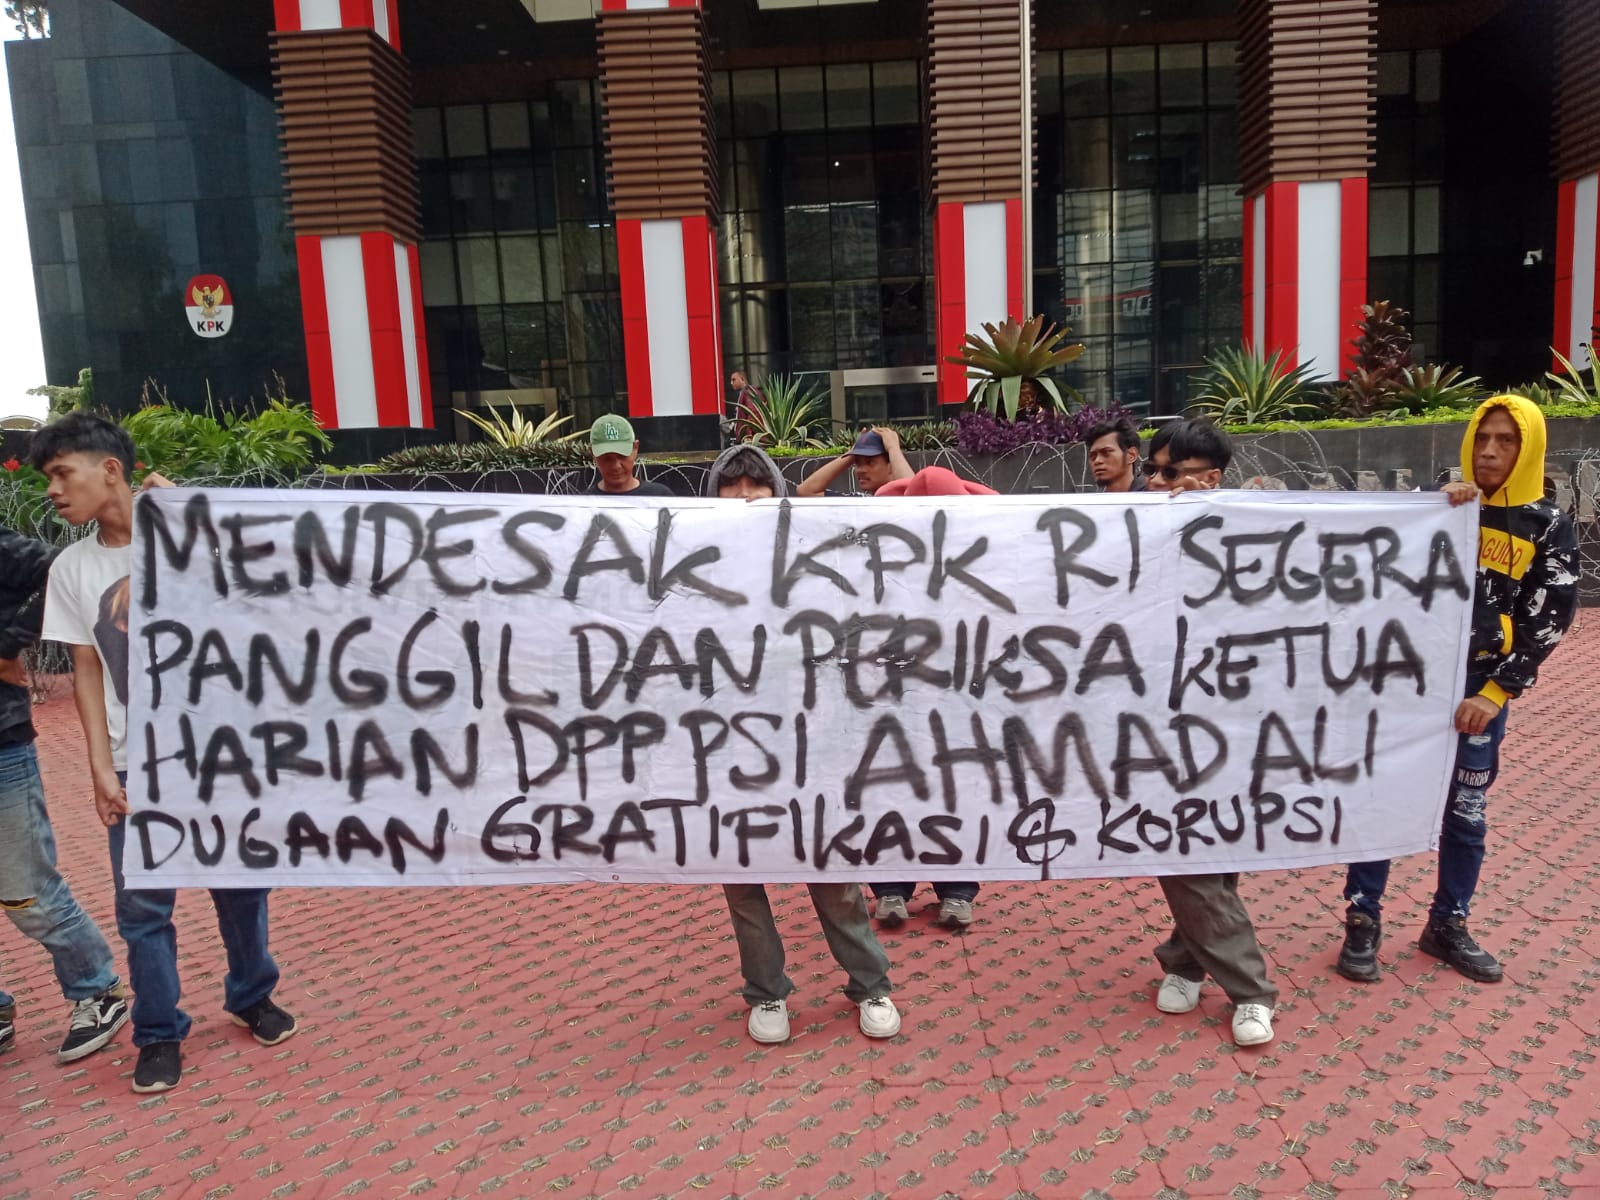 KPK
MENDESAK KPK RI SEGERA
PANGGIL DAN PERIKSA KETUA
HARIAN DPP PSI AHMAD ALI
DUGAAN GRATIFIKASI & KORUPSI
GUILD
WARRAN